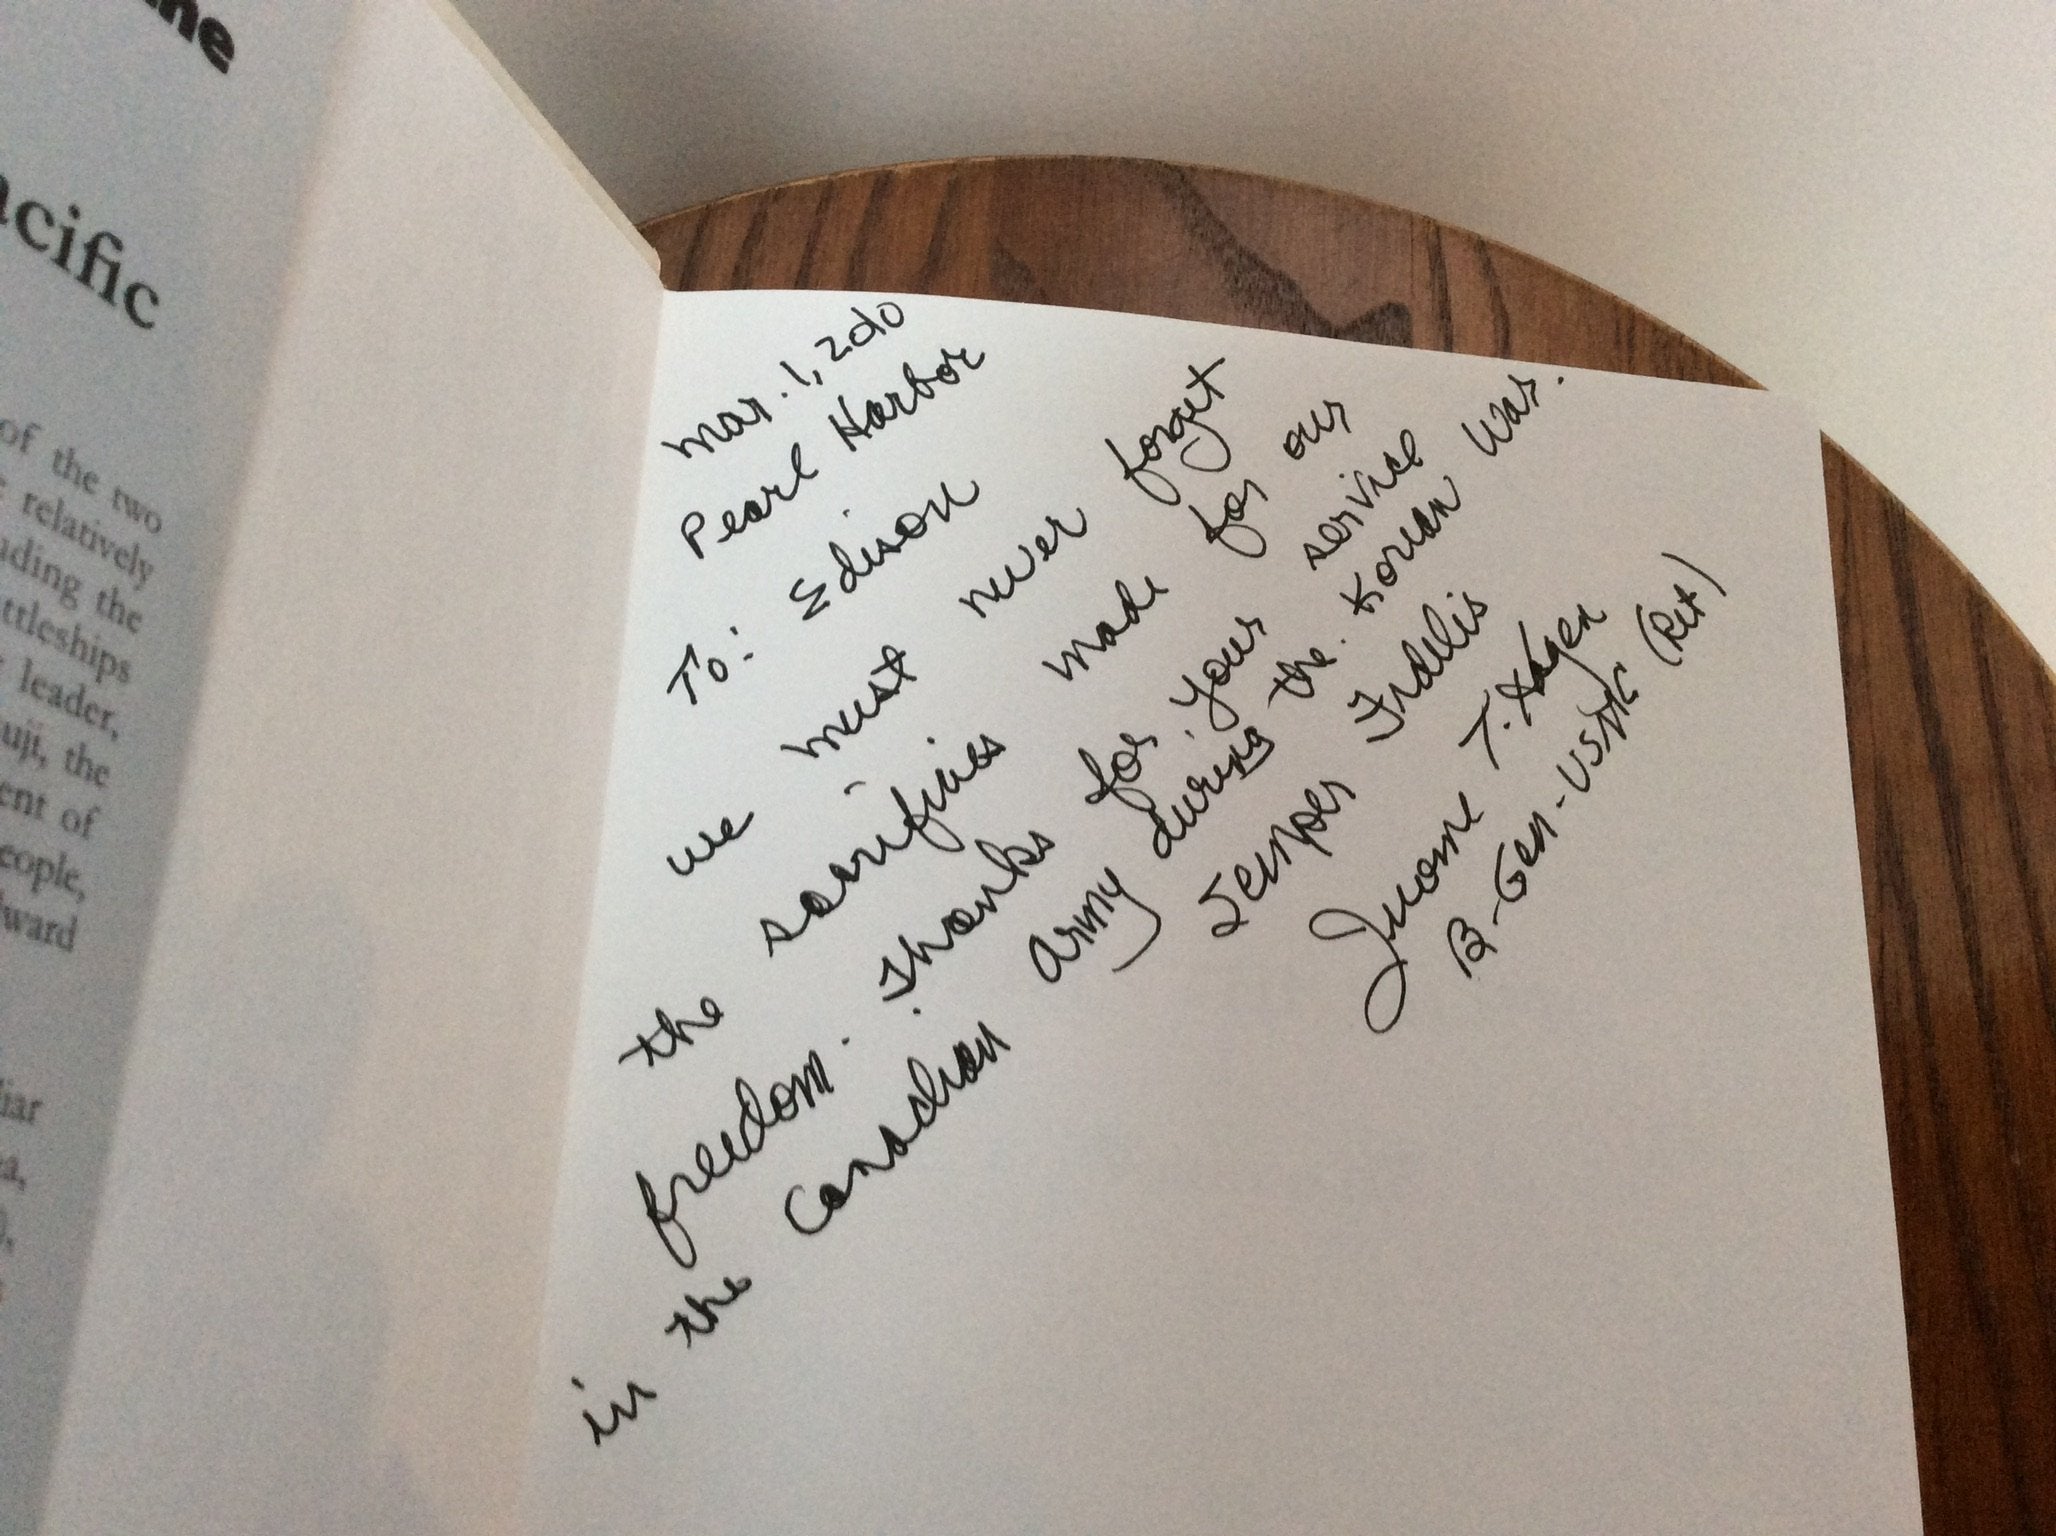 ne
acific
of the two
relatively
ading the
ttleships
leader,
uji, the
ent of
eople,
dward
iar
a,
Mar. 1, 2010
Pearl Harbor
To: Edison
we must never forget
the sacrifices made for our
freedom. Thanks for your service
in the Canadian Army during the Korean War.
Semper Fidelis
Jerome T. Hagen
B-Gen-USMC (Ret)